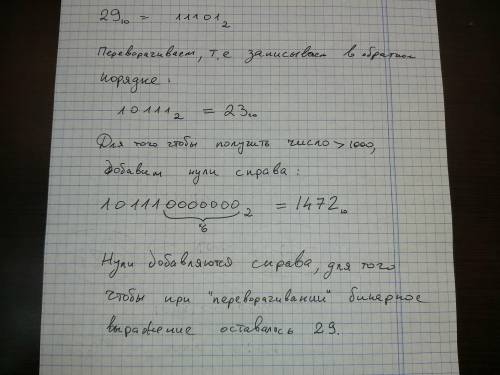 29₁₀ = 11101₂
Переворачиваем, т.е записываем в обратном
порядке:
10111₂ = 23₁₀
Для того чтобы получить число > 1000,
добавим нули справа:
101110000000₂ = 1472₁₀
6
Нули добавляются справа, для того
чтобы при "переворачивании" бинарное
выражение оставалось 29.